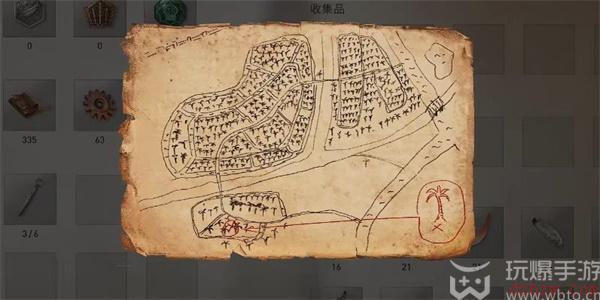 收集品
0
0
335
63
3/6
16
21
玩爆手游
www.wbto.cn